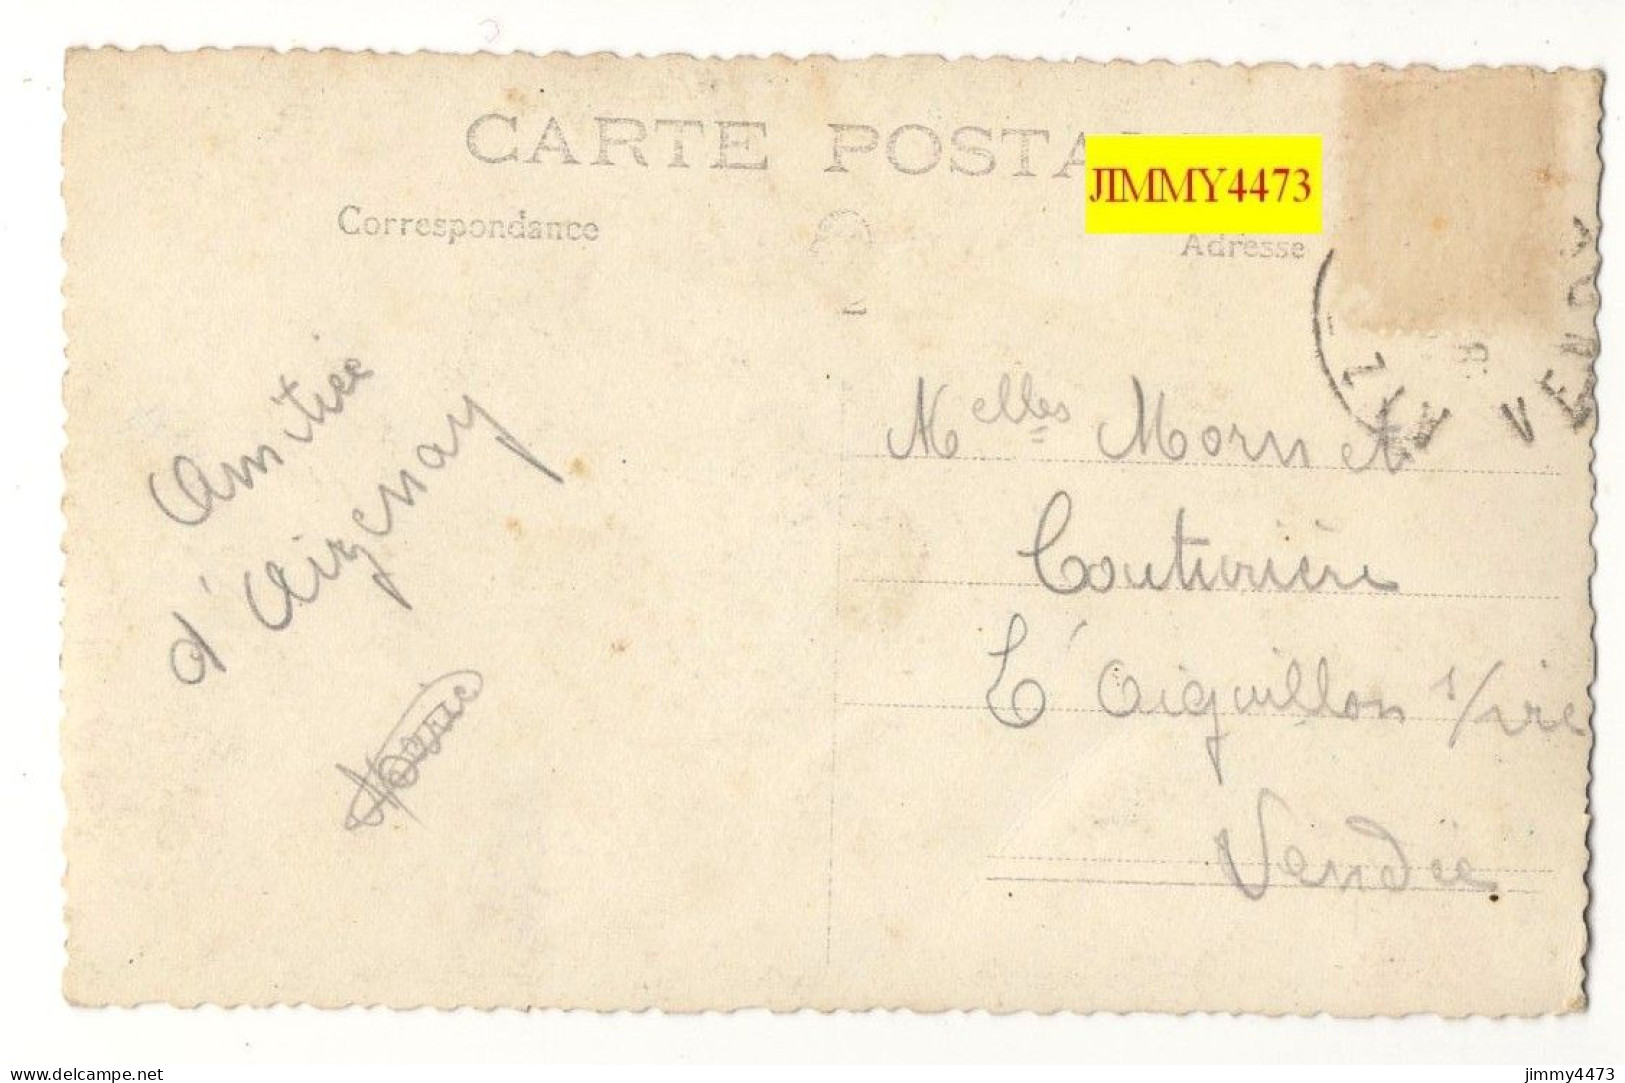 CARTE POSTA
JIMMY4473
Correspondance
Adresse
AIZ
VENDÉ
Amitiée
d'Aizenay
Melles Mornet
Couturière
L'Aiguillon s/vie
Vendée
delcampe.net
jimmy4473